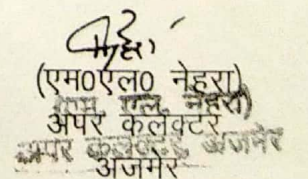 (एम0एल0 नेहरा)
एम. एल. नेहरा)
अपर कलेक्टर
अपर कलेक्टर, अजमेर
अजमेर